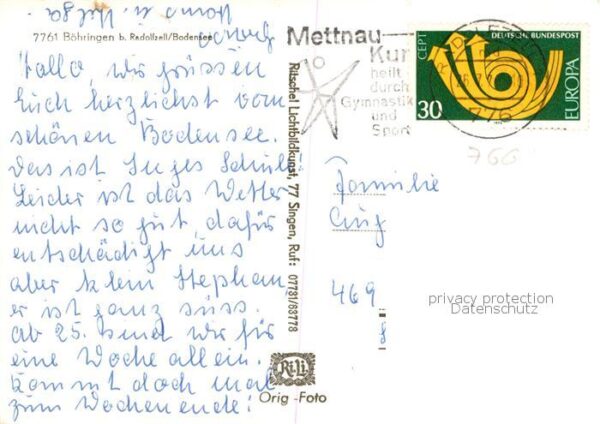 7761 Böhringen b. Radolfzell/Bodensee
Hallo, wir grüssen
Euch herzlichst vom
schönen Bodensee.
Das ist Inges Schule!
Leider ist das Wetter
nicht so gut, dafür
entschädigt uns
aber klein Stephan
er ist ganz süss.
Ab 25. sind wir für
eine Woche allein.
Kommt doch mal
zum Wochenende!
Mama u. Helga
Ritschel Lichtbildkunst, 77 Singen, Ruf: 07731/63778
RiLi
Orig.-Foto
Mettnau
Kur
heilt
durch
Gymnastik
und
Sport
CEPT
DEUTSCHE BUNDESPOST
EUROPA
30
776
766
Familie
469
8
privacy protection
Datenschutz